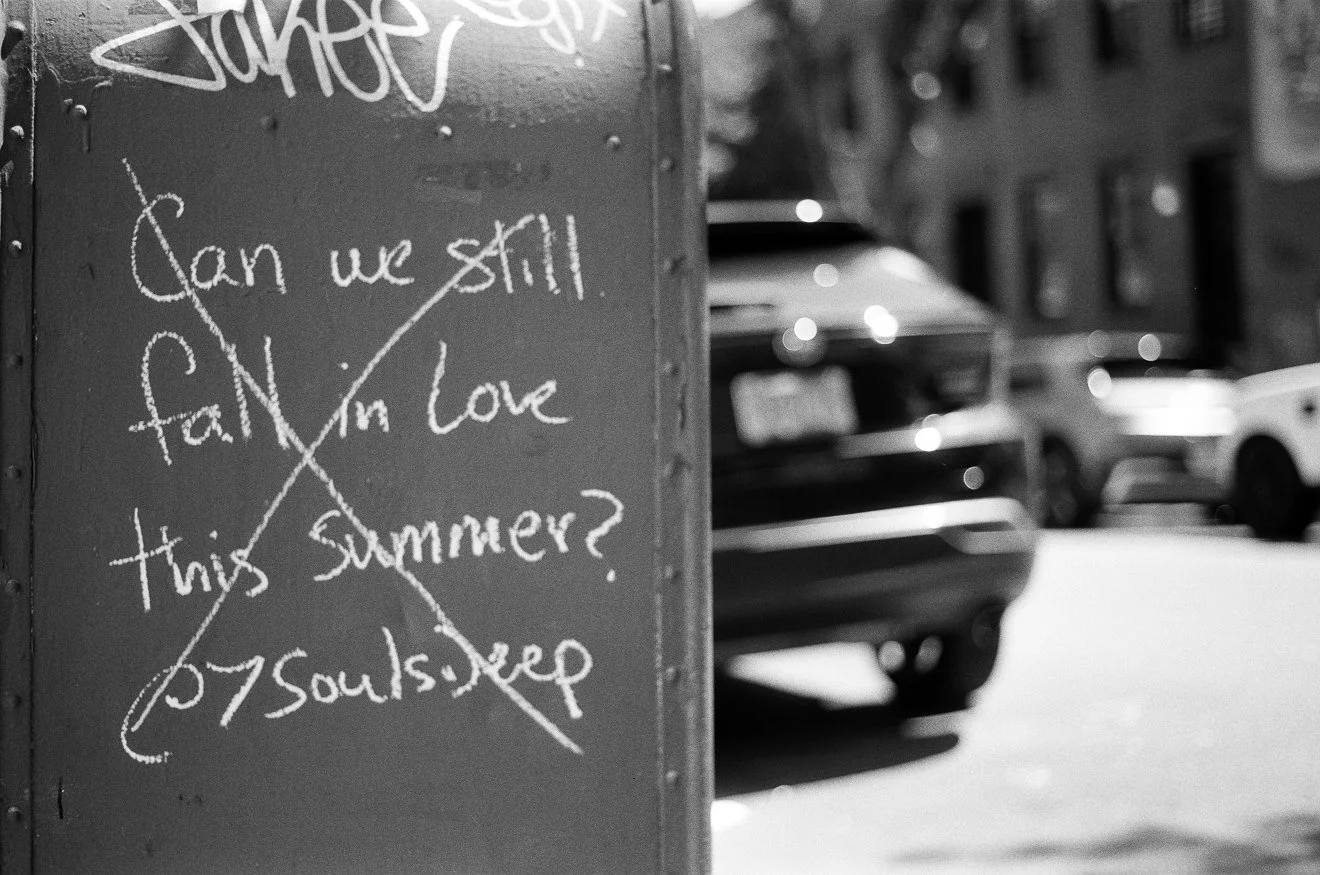 Can we still
fall in love
this summer?
@7souls.deep